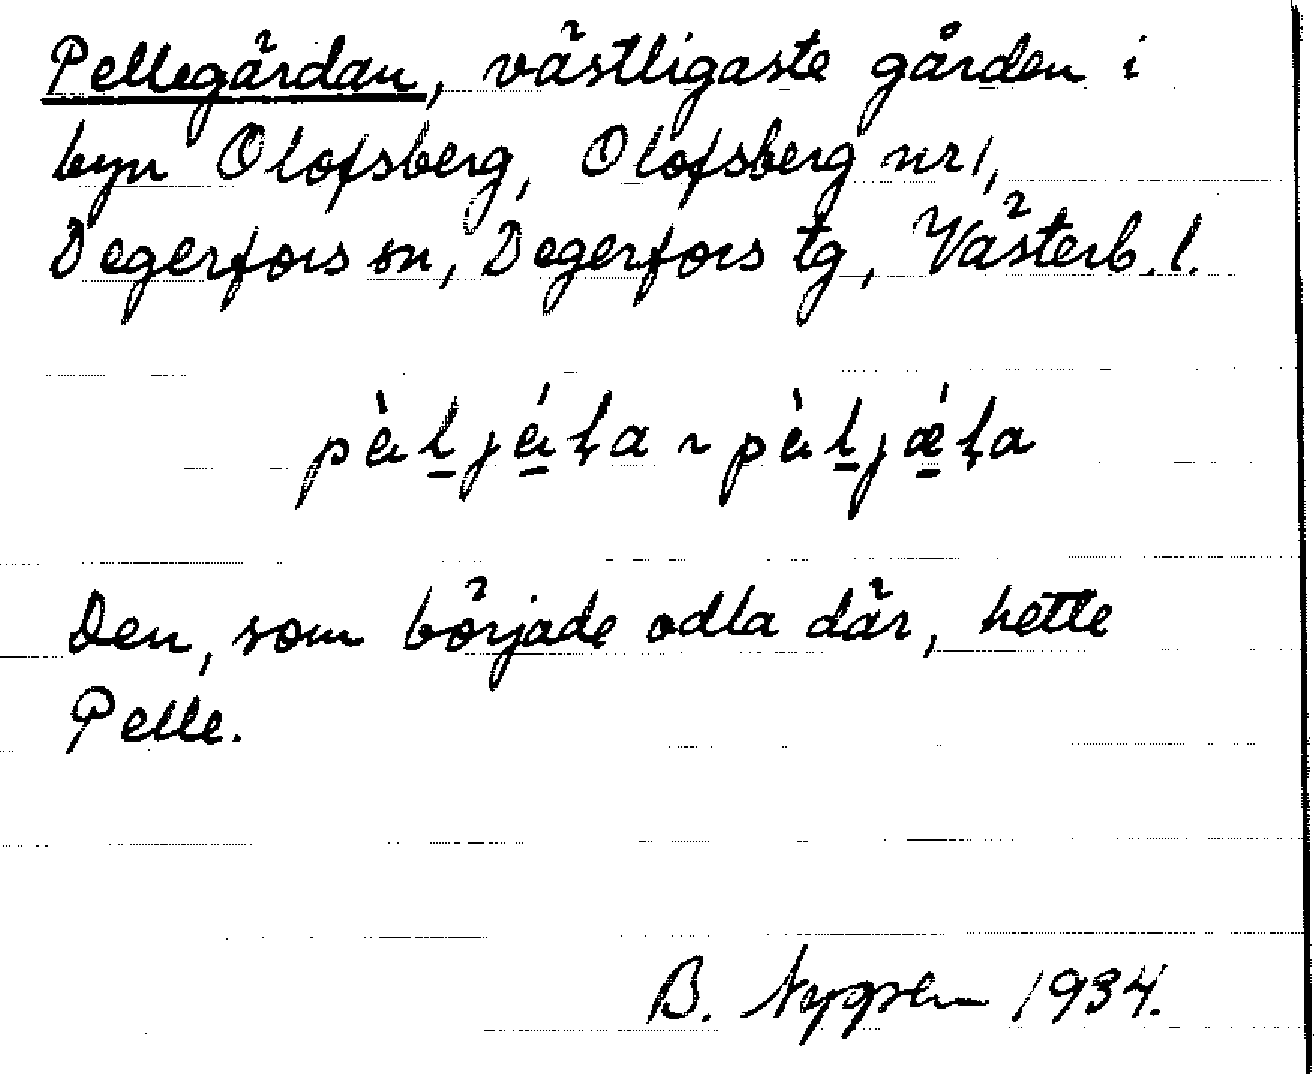 Pellegärdan, västligaste gården i
byn Olofsberg, Olofsberg nr 1,
Degerfors sn, Degerfors tg, Västerb. l.
Den, som började odla där, hette
Pelle.
B. Nygren 1934.